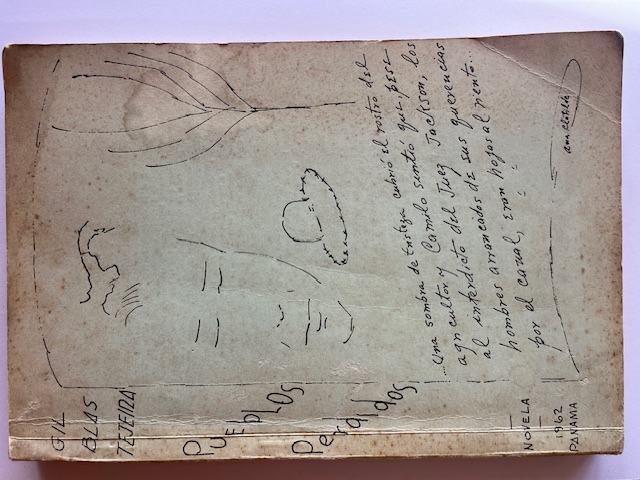 GIL
BLAS
TEJEIRA
PUEblOs
PerdidOs
...Una sombra de tristeza cubrió el rostro del
agricultor y Camilo sintió que, pese
al interdicto del Juez Jackson, los
hombres arrancados de sus querencias
por el canal, eran hojas al viento...
NOVELA
1962
PANAMA